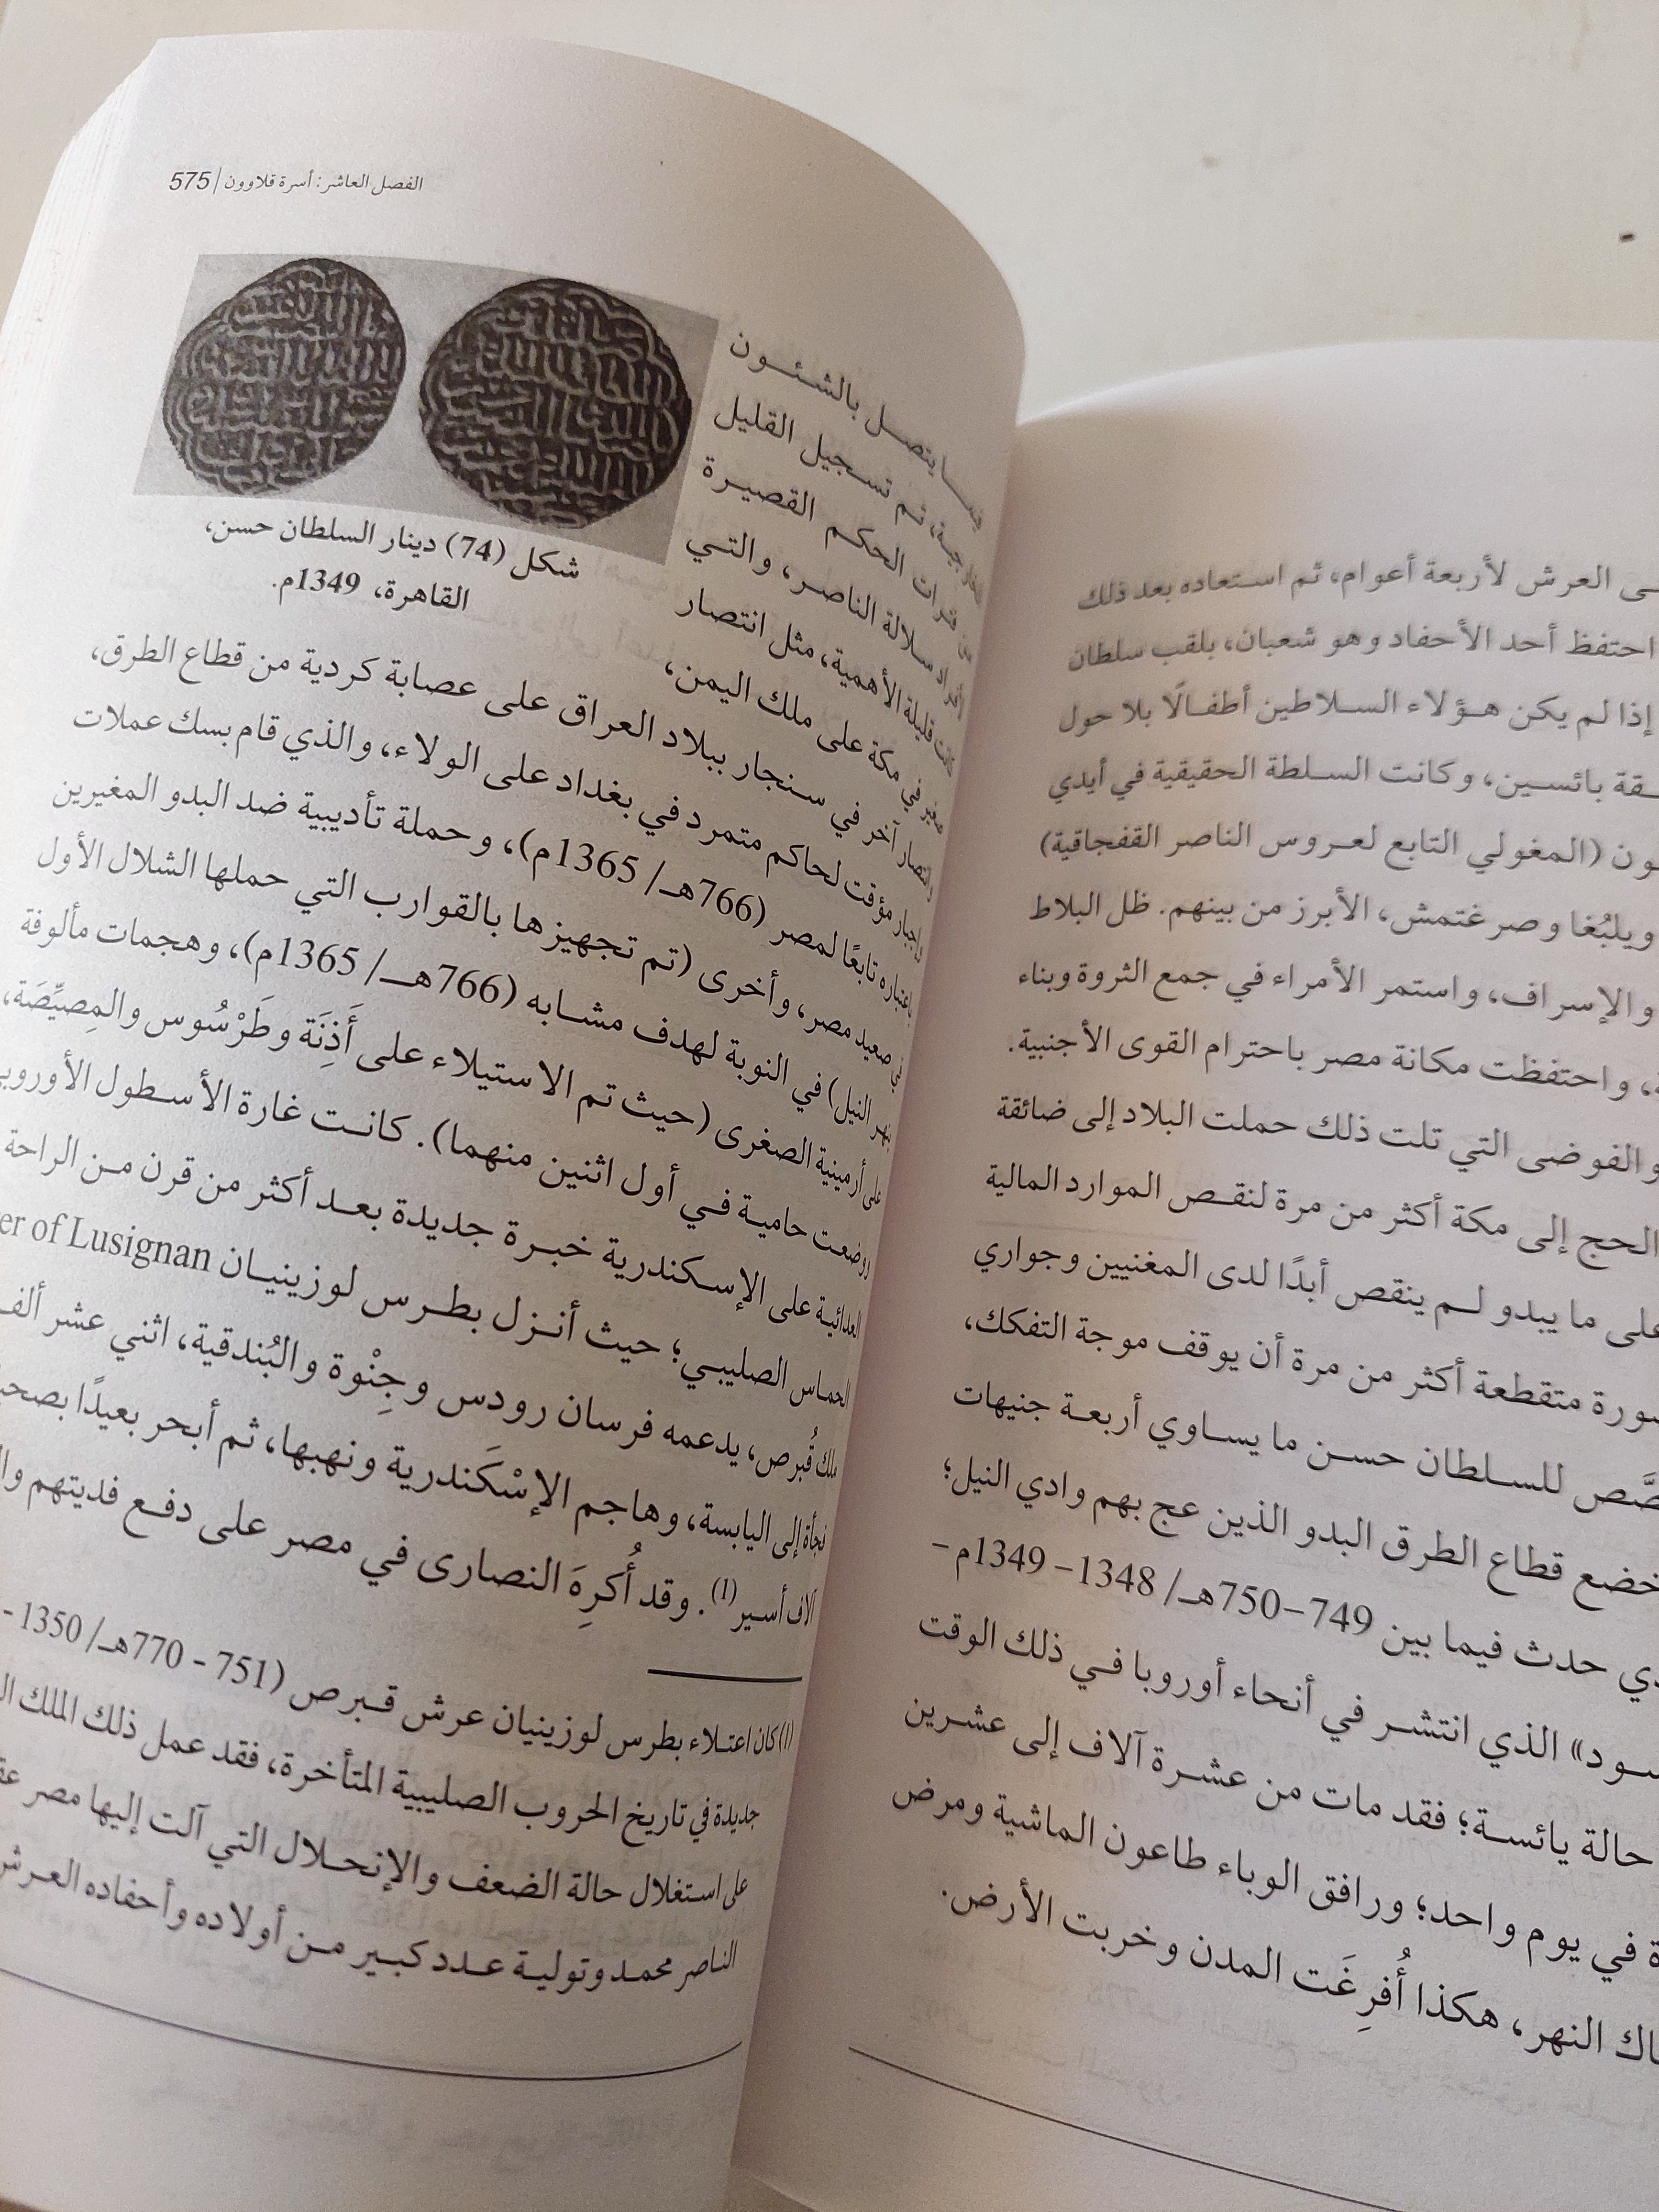 ـى العرش لأربعة أعوام، ثم استعاده بعد ذلك
احتفظ أحد الأحفاد وهو شعبان، بلقب سلطان
إذا لم يكن هؤلاء السلاطين أطفالًا بلا حول
ـقة بائسين، وكانت السلطة الحقيقية في أيدي
ـون (المغولي التابع لعروس الناصر القفجاقية)
ويلبُغا وصرغتمش، الأبرز من بينهم. ظل البلاط
والإسراف، واستمر الأمراء في جمع الثروة وبناء
ة، واحتفظت مكانة مصر باحترام القوى الأجنبية.
والفوضى التي تلت ذلك حملت البلاد إلى ضائقة
الحج إلى مكة أكثر من مرة لنقص الموارد المالية
على ما يبدو لم ينقص أبدًا لدى المغنيين وجواري
ـورة متقطعة أكثر من مرة أن يوقف موجة التفكك،
ـصَّص للسلطان حسن ما يساوي أربعة جنيهات
خضع قطاع الطرق البدو الذين عج بهم وادي النيل؛
ـذي حدث فيما بين 749–750هـ/ 1348– 1349م –
ـسود» الذي انتشر في أنحاء أوروبا في ذلك الوقت
حالة يائسة؛ فقد مات من عشرة آلاف إلى عشرين
ة في يوم واحد؛ ورافق الوباء طاعون الماشية ومرض
ـاك النهر، هكذا أُفرِغَت المدن وخربت الأرض.
الفصل العاشر: أسرة قلاوون | 575
يتصل بالشئون
تم تسجيل القليل
فترات الحكم القصيرة
سلالة الناصر، والتي
كانت قليلة الأهمية، مثل انتصار
صغير في مكة على ملك اليمن،
شكل (74) دينار السلطان حسن،
القاهرة، 1349م.
وانتصار آخر في سنجار ببلاد العراق على عصابة كردية من قطاع الطرق،
وإجبار مؤقت لحاكم متمرد في بغداد على الولاء، والذي قام بسك عملات
باعتباره تابعًا لمصر (766هـ/ 1365م)، وحملة تأديبية ضد البدو المغيرين
في صعيد مصر، وأخرى (تم تجهيزها بالقوارب التي حملها الشلال الأول
بنهر النيل) في النوبة لهدف مشابه (766هـ/ 1365م)، وهجمات مألوفة
على أرمينية الصغرى (حيث تم الاستيلاء على أَذِنَة وطَرْسُوس والمِصيِّصَة،
ووضعت حامية في أول اثنين منهما). كانت غارة الأسطول الأوروبي
العدائية على الإسكندرية خبرة جديدة بعد أكثر من قرن من الراحة
الحماس الصليبي؛ حيث أنزل بطرس لوزينيان er of Lusignan
ملك قُبرص، يدعمه فرسان رودس وجِنْوة والبُندقية، اثني عشر ألف
فجأة إلى اليابسة، وهاجم الإسْكَندرية ونهبها، ثم أبحر بعيدًا بصحبـ
آلاف أسير(1). وقد أُكرِهَ النصارى في مصر على دفع فديتهم وا
(1) كان اعتلاء بطرس لوزينيان عرش قبرص (751 - 770هـ/ 1350 -
جديدة في تاريخ الحروب الصليبية المتأخرة، فقد عمل ذلك الملك
على استغلال حالة الضعف والإنحلال التي آلت إليها مصر
الناصر محمد وتولية عدد كبير من أولاده وأحفاده العرش